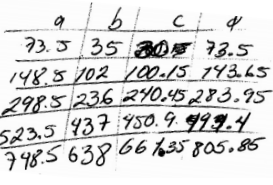 a b c d
73.5 35 30 73.5
148.5 102 100.15 143.65
298.5 236 240.45 283.95
523.5 437 450.9 494.4
748.5 638 661.35 805.85